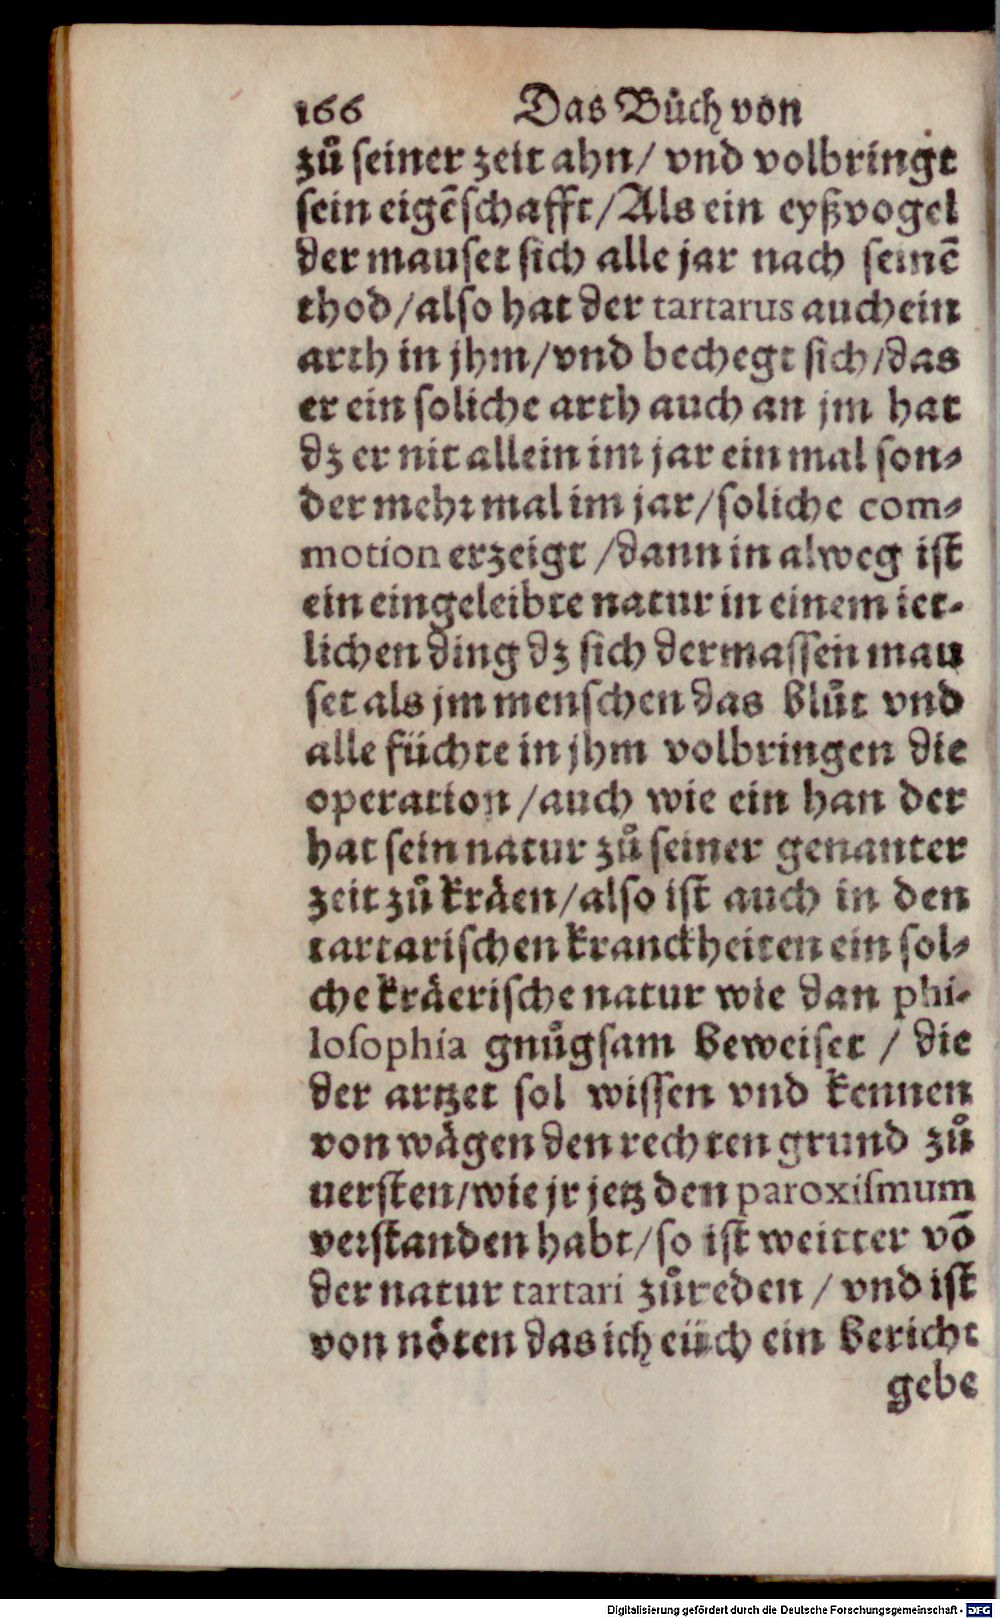 166 Das Bůch von
zů seiner zeit ahn/ vnd volbringt
sein eigēschafft/Als ein eyßvogel
der mauset sich alle jar nach seinē
thod/also hat der tartarus auch ein
arth in jhm/vnd bechegt sich/das
er ein soliche arth auch an jm hat
dz er nit allein im jar ein mal son⸗
der mehr mal im jar/soliche com⸗
motion erzeigt /dann in alweg ist
ein eingeleibte natur in einem iet-
lichen ding dz sich dermassen mau
set als jm menschen das blůt vnd
alle füchte in jhm volbringen die
operation /auch wie ein han der
hat sein natur zů seiner genanter
zeit zů kräen/also ist auch in den
tartarischen kranckheiten ein sol⸗
che kräerische natur wie dan phi-
losophia gnůgsam beweiset / die
der artzet sol wissen vnd kennen
von wägen den rechten grund zů
uersten/wie jr jetz den paroxismum
verstanden habt/so ist weitter vō
der natur tartari zůreden / vnd ist
von nöten das ich eüch ein bericht
gebe
Digitalisierung gefördert durch die Deutsche Forschungsgemeinschaft - DFG